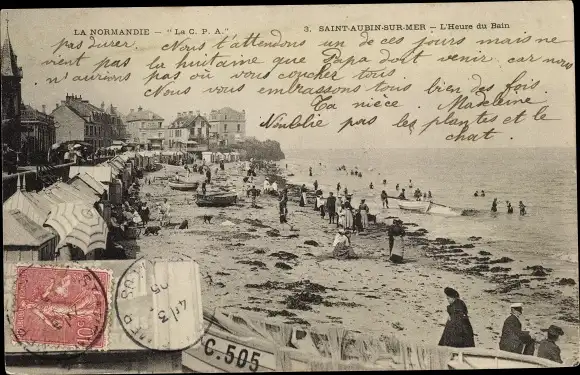 LA NORMANDIE — "La C. P. A." 3. SAINT-AUBIN-SUR-MER — L'Heure du Bain
pas durer. Nous t'attendons un de ces jours mais ne
vient pas la huitaine que Papa doit venir car nous
n'aurions pas où vous coucher tous.
Nous vous embrassons tous bien des fois
Ta nièce. Madeleine
N'oublie pas les plantes et le
chat.
C.505